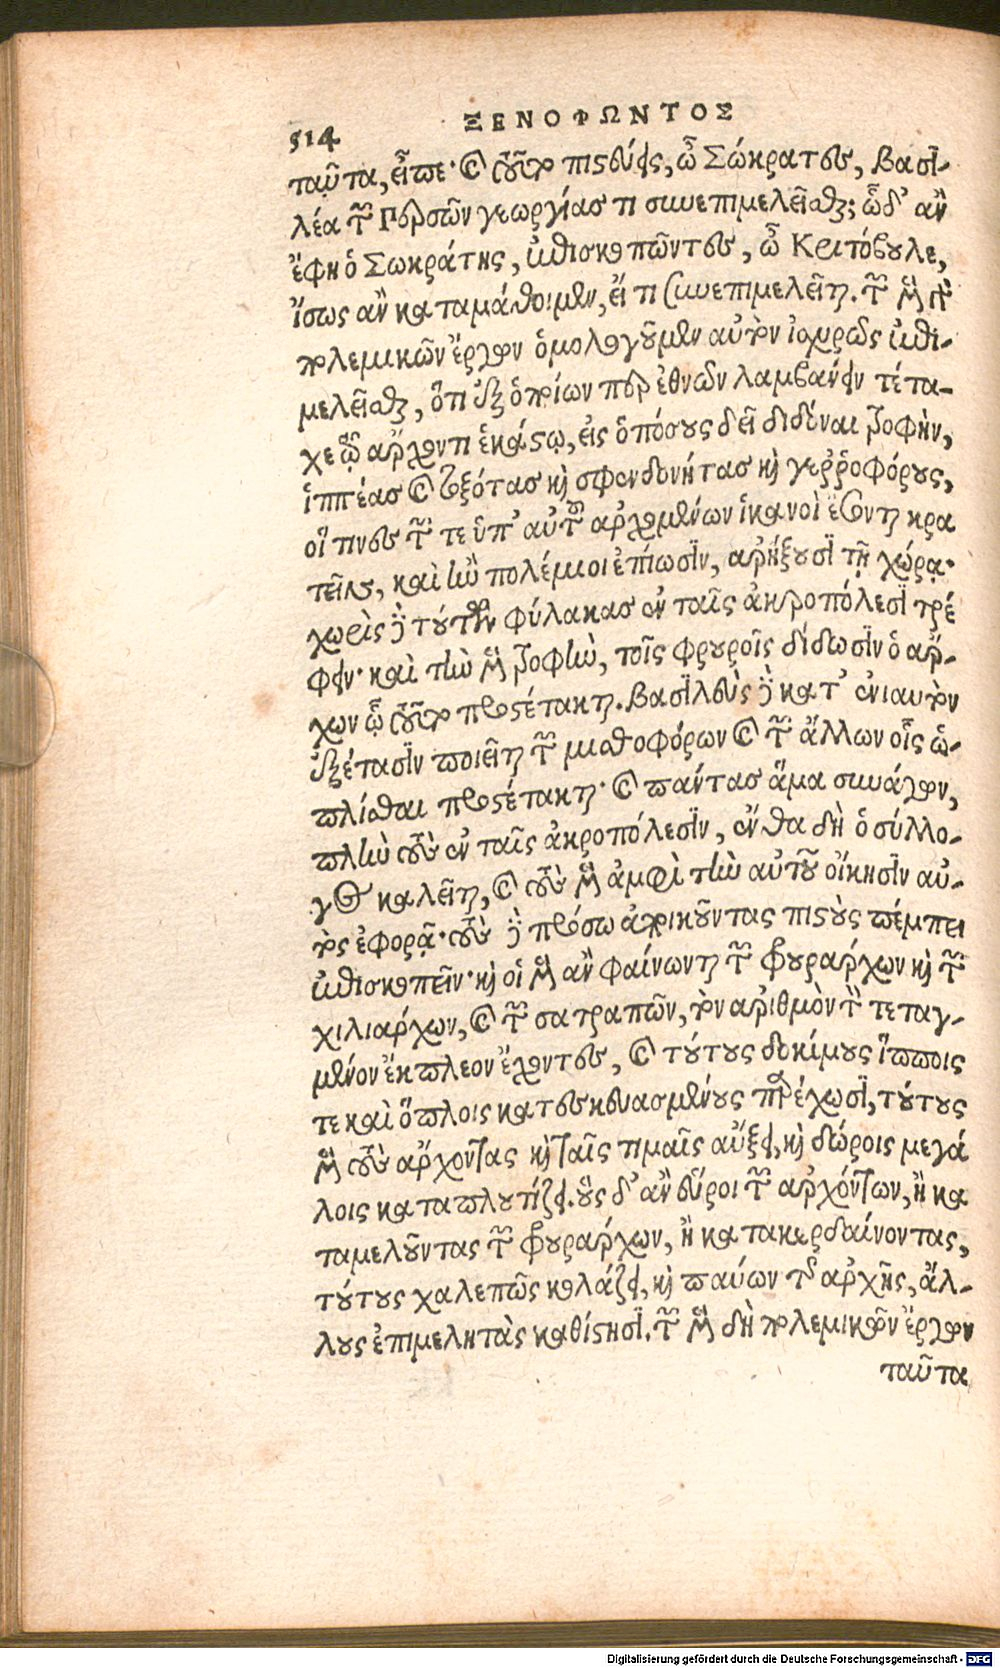 514
ΞΕΝΟΦΩΝΤΟΣ
ταῦτα, εἶπε· καὶ τοῦτο πιστεύεις, ὦ Σώκρατες, βασι-
λέα τῶν Περσῶν γεωργίας τι συνεπιμελεῖσθαι; ὧδ' ἂν
ἔφη ὁ Σωκράτης, ἐπισκοποῦντες, ὦ Κριτόβουλε,
ἴσως ἂν καταμάθοιμεν, εἴ τι συνεπιμελεῖται. τῶν μὲν γὰρ
πολεμικῶν ἔργων ὁμολογοῦμεν αὐτὸν ἰσχυρῶς ἐπι-
μελεῖσθαι, ὅτι ἐξ ὁποίων περ ἐθνῶν λαμβάνειν τέτα-
χε τῷ ἄρχοντι ἑκάστῳ, εἰς ὁπόσους δεῖ διδόναι τροφὴν,
ἱππέας καὶ τοξότας καὶ σφενδονήτας καὶ γεῤῥοφόρους,
οἵ τινες τῶν τε ὑπ' αὐτοῦ ἀρχομένων ἱκανοὶ ἔσονται κρα
τεῖν, καὶ ἢν πολέμιοι ἐπίωσιν, ἀρήξουσι τῇ χώρᾳ·
χωρὶς δὲ τούτων φύλακας ἐν ταῖς ἀκροπόλεσι τρέ
φειν· καὶ τὴν μὲν τροφὴν, τοῖς φρουροῖς δίδωσιν ὁ ἄρ-
χων ᾧ τοῦτο προστέτακται. βασιλεὺς δὲ κατ' ἐνιαυτὸν
ἐξέτασιν ποιεῖται τῶν μισθοφόρων καὶ τῶν ἄλλων οἷς ὡ-
πλίσθαι προστέτακται· καὶ πάντας ἅμα συνάγων,
πλὴν τοὺς ἐν ταῖς ἀκροπόλεσιν, ἔνθα δὴ ὁ σύλλο-
γος καλεῖται, καὶ τοὺς μὲν ἀμφὶ τὴν αὐτοῦ οἴκησιν αὐ-
τὸς ἐφορᾷ· τοὺς δὲ πρόσω ἀποικοῦντας πιστοὺς πέμπει
ἐπισκοπεῖν· καὶ οἳ μὲν ἂν φαίνωνται τῶν φρουράρχων καὶ τῶν
χιλιάρχων, καὶ τῶν σατραπῶν, τὸν ἀριθμὸν τὸν τεταγ-
μένον ἔκπλεον ἔχοντες, καὶ τούτους δοκίμους ἵπποις
τε καὶ ὅπλοις κατεσκευασμένους παρέχωσι, τούτους
μὲν τοὺς ἄρχοντας καὶ ταῖς τιμαῖς αὔξει, καὶ δώροις μεγά
λοις καταπλουτίζει. οὓς δ' ἂν εὕροι τῶν ἀρχόντων, ἢ κα
ταμελοῦντας τῶν φρουράρχων, ἢ κατακερδαίνοντας,
τούτους χαλεπῶς κολάζει, καὶ παύων τῆς ἀρχῆς, ἄλ-
λους ἐπιμελητὰς καθίστησι. τῶν μὲν δὴ πολεμικῶν ἔργων
ταῦτα
Digitalisierung gefördert durch die Deutsche Forschungsgemeinschaft - DFG